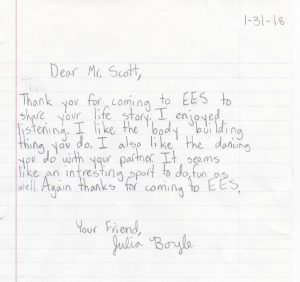 1-31-18
Dear Mr. Scott,
Thank you for coming to EES to
share your life story. I enjoyed
listening. I like the body building
thing you do. I also like the dancing
you do with your partner. It seems
like an intresting sport to do, fun as
well. Again thanks for coming to EES.
Your Friend,
Julia Boyle